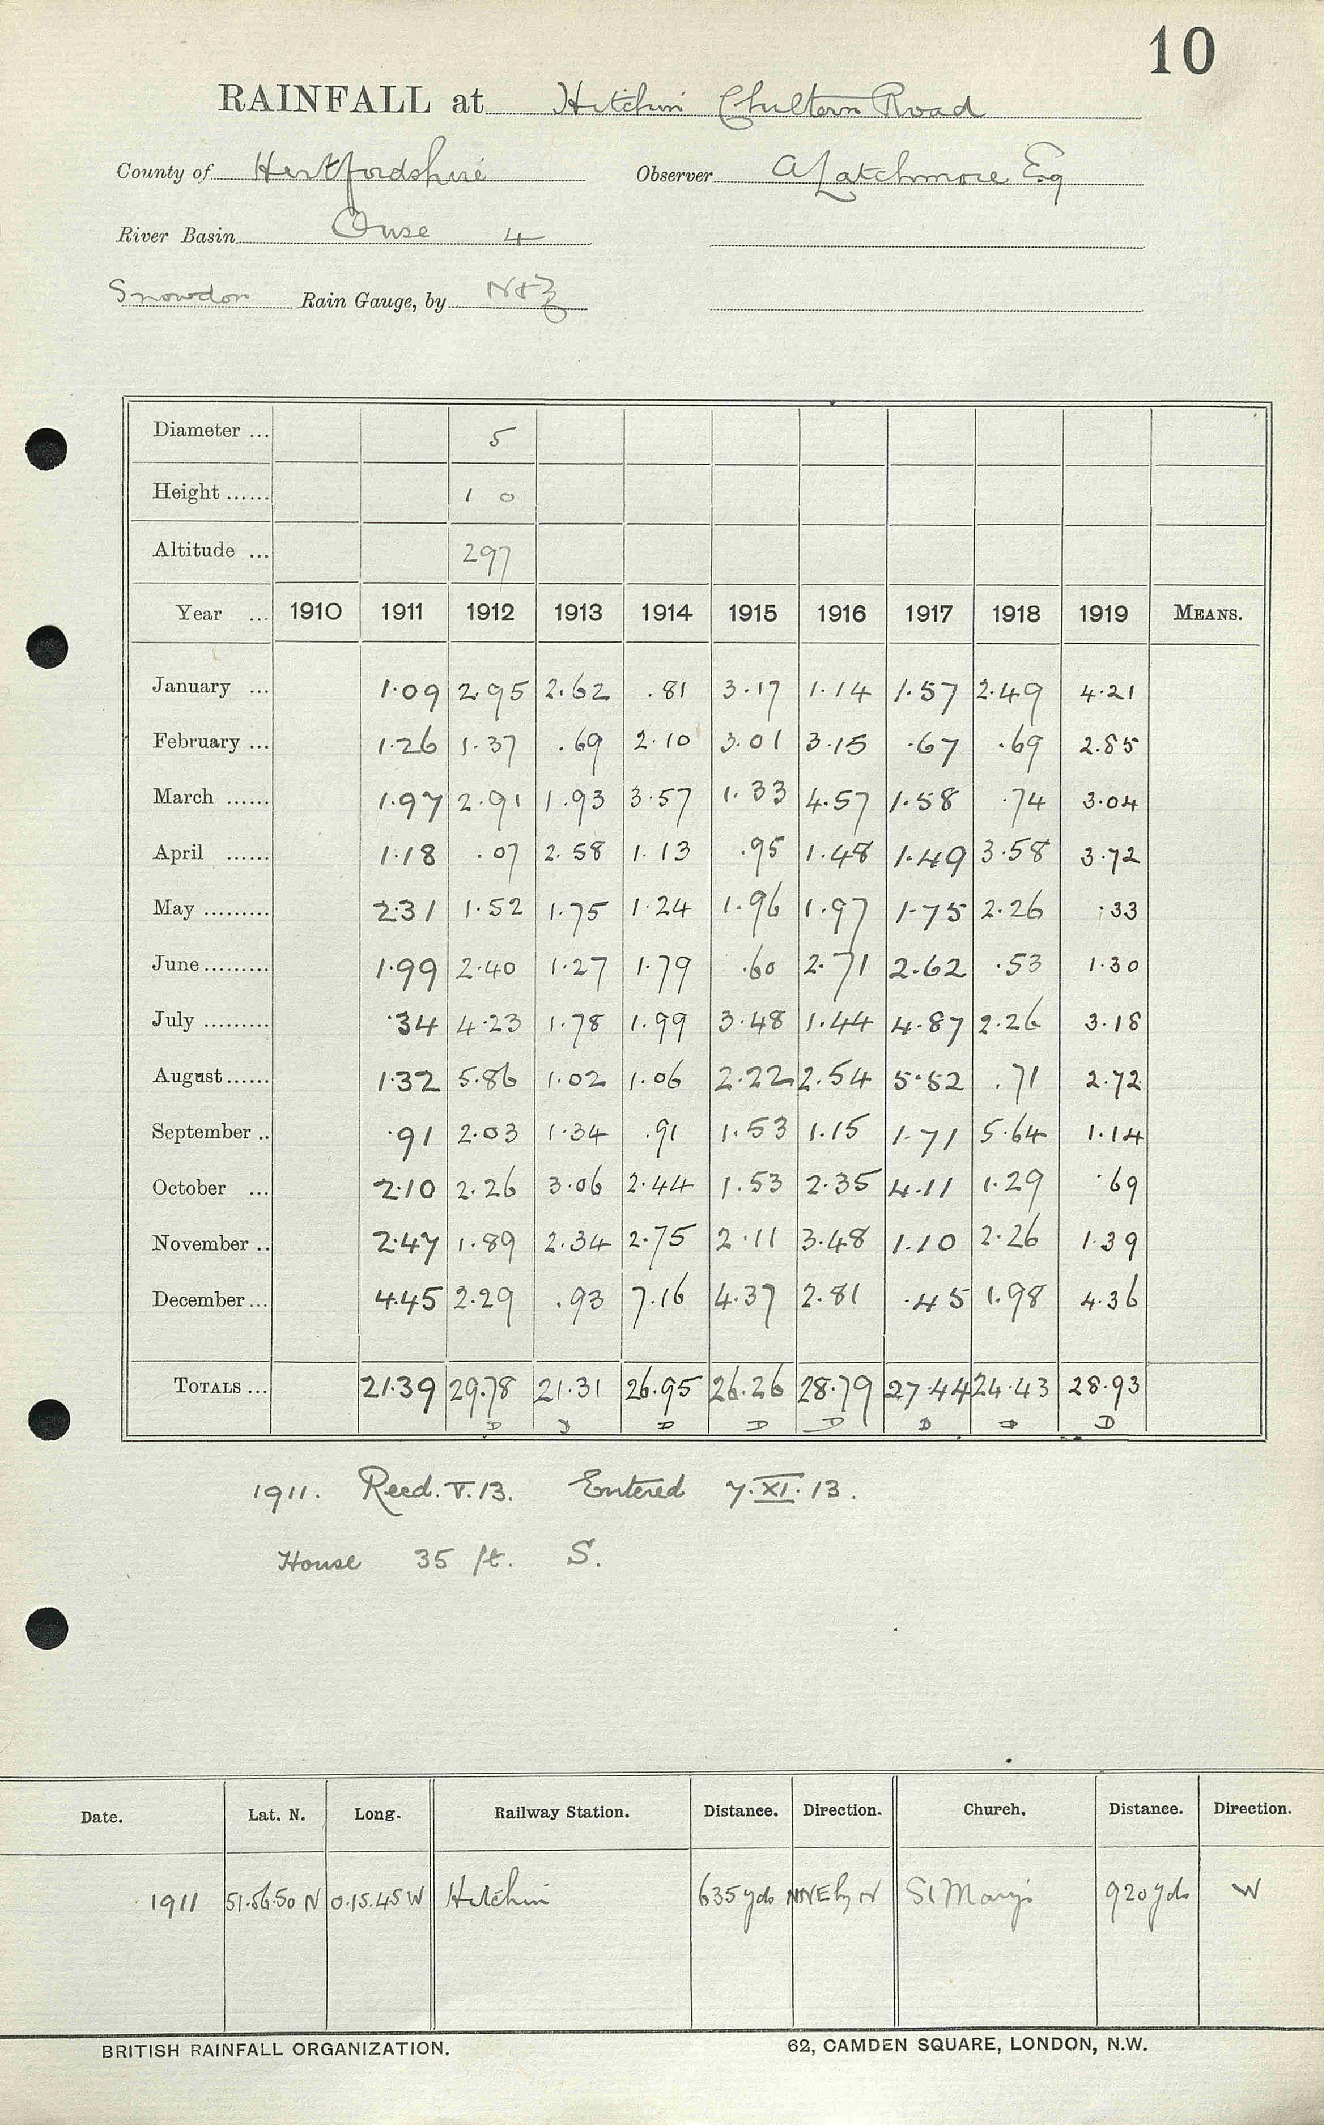 10
RAINFALL at Hitchin Chiltern Road
County of Hertfordshire Observer A Latchmore Esq
River Basin Ouse 4
Snowdon Rain Gauge, by N&Z
Diameter ... 5
Height ...... 1 0
Altitude ... 297
Year ... 1910 1911 1912 1913 1914 1915 1916 1917 1918 1919 MEANS.
January ... 1.09 2.95 2.62 .81 3.17 1.14 1.57 2.49 4.21
February ... 1.26 1.37 .69 2.10 3.01 3.15 .67 .69 2.85
March ...... 1.97 2.91 1.93 3.57 1.33 4.57 1.58 .74 3.04
April ...... 1.18 .07 2.58 1.13 .95 1.48 1.49 3.58 3.72
May ......... 2.31 1.52 1.75 1.24 1.96 1.97 1.75 2.26 .33
June ......... 1.99 2.40 1.27 1.79 .60 2.71 2.62 .53 1.30
July ......... .34 4.23 1.78 1.99 3.48 1.44 4.87 2.26 3.18
August ...... 1.32 5.86 1.02 1.06 2.22 2.54 5.52 .71 2.72
September .. .91 2.03 1.34 .91 1.53 1.15 1.71 5.64 1.14
October ... 2.10 2.26 3.06 2.44 1.53 2.35 4.11 1.29 .69
November .. 2.47 1.89 2.34 2.75 2.11 3.48 1.10 2.26 1.39
December ... 4.45 2.29 .93 7.16 4.37 2.81 .45 1.98 4.36
TOTALS ... 21.39 29.78 21.31 26.95 26.26 28.79 27.44 24.43 28.93
D D D D D D D D
1911. Recd. V. 13. Entered 7. XI. 13.
House 35 ft. S.
Date. Lat. N. Long. Railway Station. Distance. Direction. Church. Distance. Direction.
1911 51.56.50 N 0.15.45 W Hitchin 635 yds NNE by N St Mary's 920 yds W
BRITISH RAINFALL ORGANIZATION. 62, CAMDEN SQUARE, LONDON, N.W.